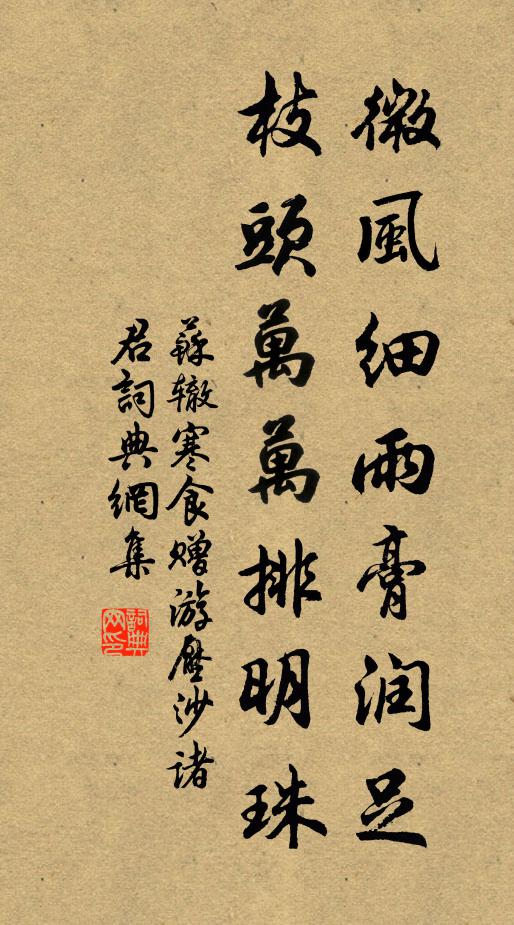 微風細雨膏润足
枝頭萬萬排明珠
蘇辙寒食赠游壓沙諸
君詞典網集
詞典
网印